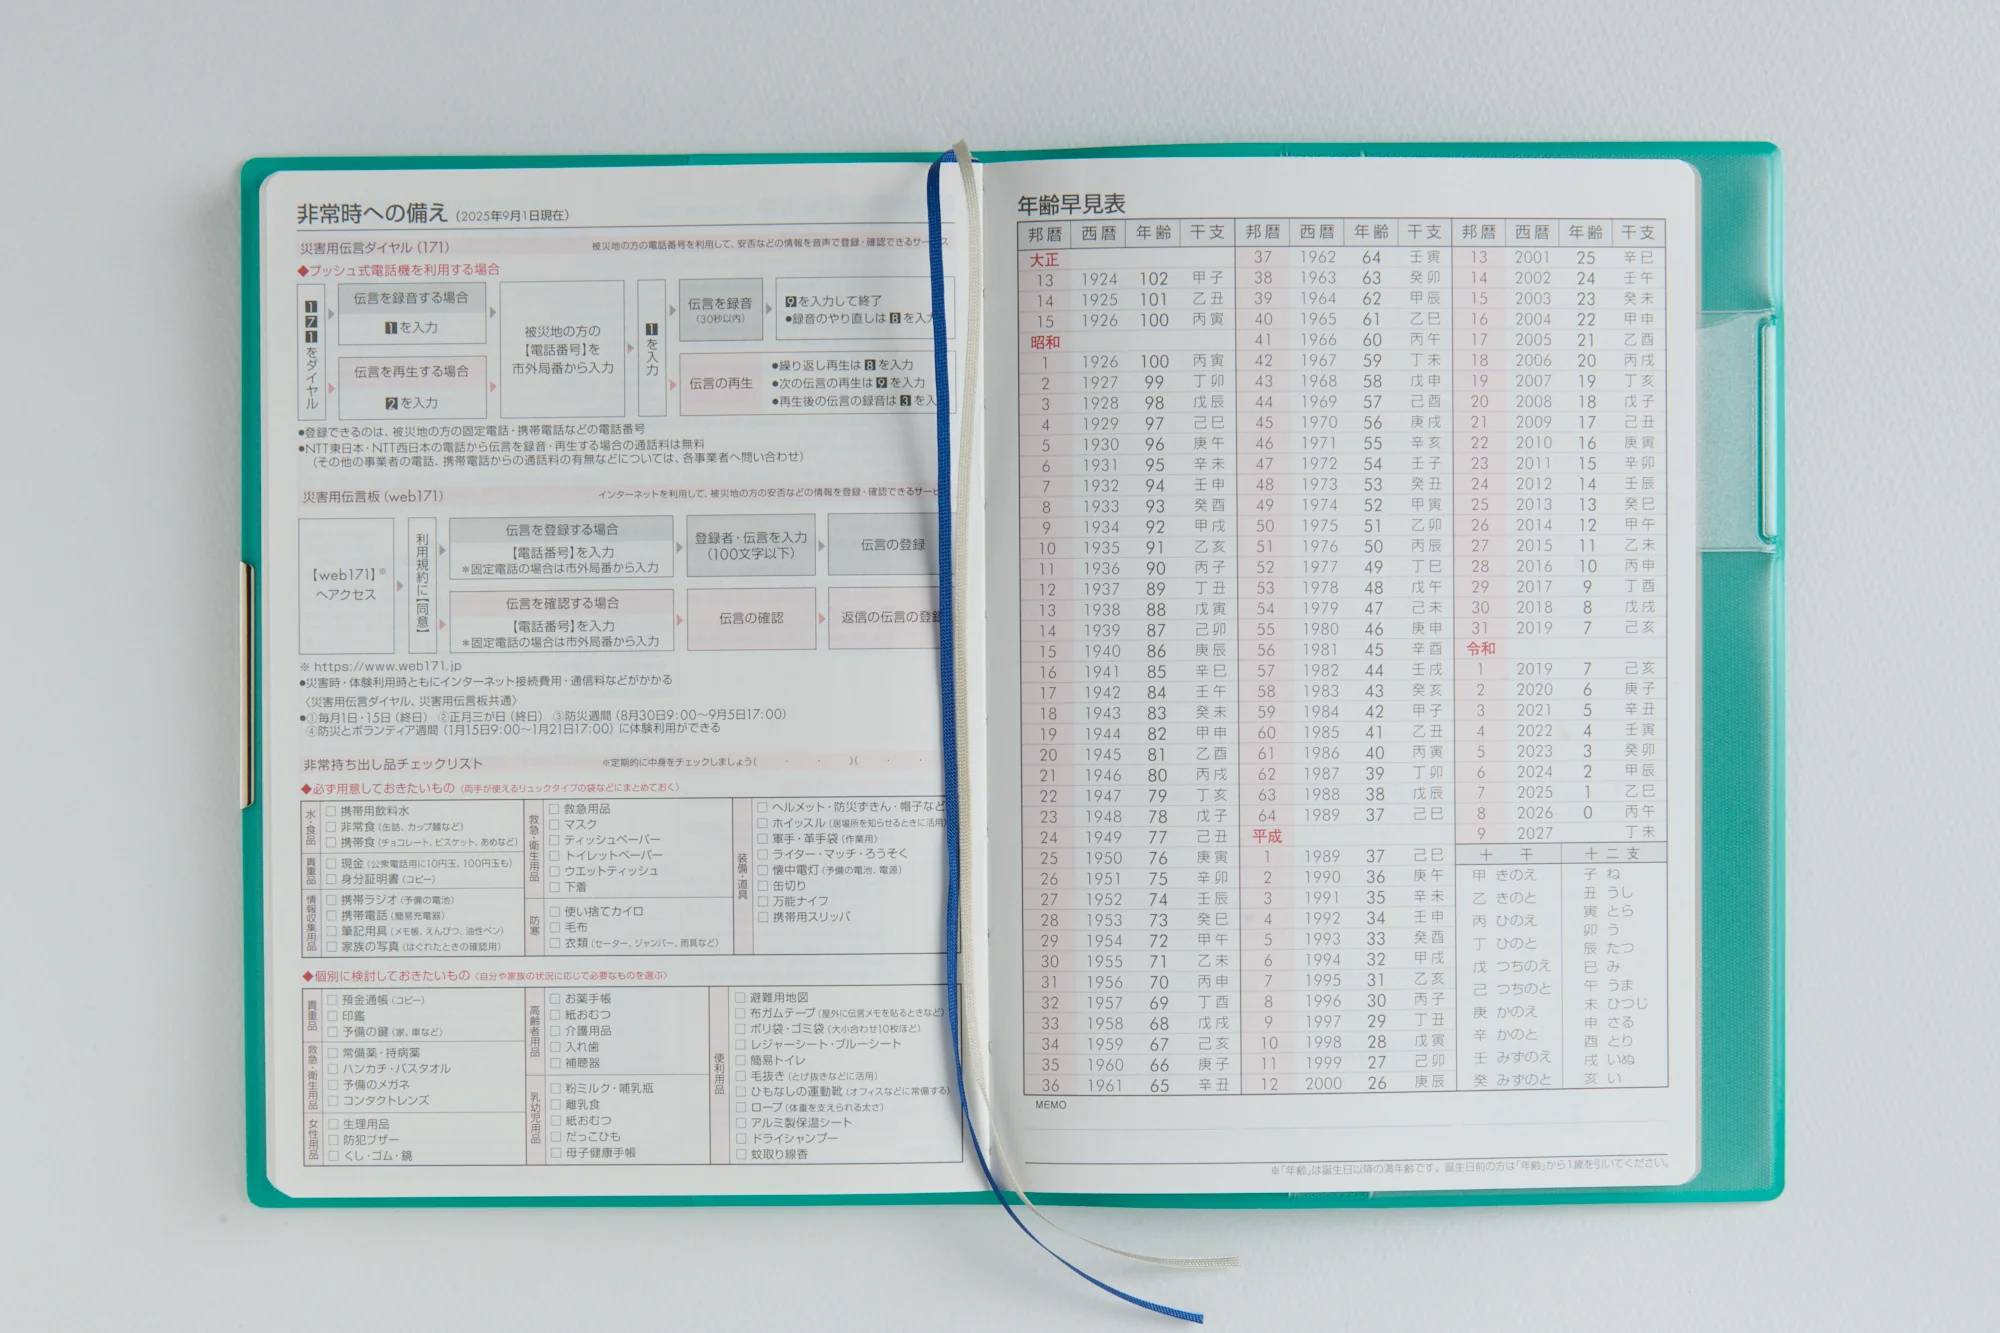 非常時への備え(2025年9月1日現在)
災害用伝言ダイヤル(171) 被災地の方の電話番号を利用して、安否などの情報を音声で登録・確認できるサー
◆プッシュ式電話機を利用する場合
171をダイヤル
伝言を録音する場合
1を入力
伝言を再生する場合
2を入力
被災地の方の
【電話番号】を
市外局番から入力
1を入力
伝言を録音
(30秒以内)
9を入力して終了
●録音のやり直しは8を入力
伝言の再生
●繰り返し再生は8を入力
●次の伝言の再生は9を入力
●再生後の伝言の録音は3を入
●登録できるのは、被災地の方の固定電話・携帯電話などの電話番号
●NTT東日本・NTT西日本の電話から伝言を録音・再生する場合の通話料は無料
(その他の事業者の電話、携帯電話からの通話料の有無などについては、各事業者へ問い合わせ)
災害用伝言板(web171) インターネットを利用して、被災地の方の安否などの情報を登録・確認できるサー
【web171】※
へアクセス
利用規約に【同意】
伝言を登録する場合
【電話番号】を入力
*固定電話の場合は市外局番から入力
登録者・伝言を入力
(100文字以下)
伝言の登録
伝言を確認する場合
【電話番号】を入力
*固定電話の場合は市外局番から入力
伝言の確認
返信の伝言の登録
※ https://www.web171.jp
●災害時・体験利用時ともにインターネット接続費用・通信料などがかかる
〈災害用伝言ダイヤル、災害用伝言板共通〉
●①毎月1日・15日(終日) ②正月三が日(終日) ③防災週間(8月30日9:00〜9月5日17:00)
④防災とボランティア週間(1月15日9:00〜1月21日17:00)に体験利用ができる
非常持ち出し品チェックリスト ※定期的に中身をチェックしましょう( ・ ・ )( ・ ・
◆必ず用意しておきたいもの〈両手が使えるリュックタイプの袋などにまとめておく〉
水・食品
□ 携帯用飲料水
□ 非常食(缶詰、カップ麺など)
□ 携帯食(チョコレート、ビスケット、あめなど)
貴重品
□ 現金(公衆電話用に10円玉、100円玉も)
□ 身分証明書(コピー)
情報収集用品
□ 携帯ラジオ(予備の電池)
□ 携帯電話(簡易充電器)
□ 筆記用具(メモ帳、えんぴつ、油性ペン)
□ 家族の写真(はぐれたときの確認用)
救急・衛生用品
□ 救急用品
□ マスク
□ ティッシュペーパー
□ トイレットペーパー
□ ウエットティッシュ
□ 下着
防寒
□ 使い捨てカイロ
□ 毛布
□ 衣類(セーター、ジャンパー、雨具など)
装備・道具
□ ヘルメット・防災ずきん・帽子など
□ ホイッスル(居場所を知らせるときに活用
□ 軍手・革手袋(作業用)
□ ライター・マッチ・ろうそく
□ 懐中電灯(予備の電池、電源)
□ 缶切り
□ 万能ナイフ
□ 携帯用スリッパ
◆個別に検討しておきたいもの〈自分や家族の状況に応じて必要なものを選ぶ〉
貴重品
□ 預金通帳(コピー)
□ 印鑑
□ 予備の鍵(家、車など)
救急・衛生用品
□ 常備薬・持病薬
□ ハンカチ・バスタオル
□ 予備のメガネ
□ コンタクトレンズ
女性用品
□ 生理用品
□ 防犯ブザー
□ くし・ゴム・鏡
高齢者用品
□ お薬手帳
□ 紙おむつ
□ 介護用品
□ 入れ歯
□ 補聴器
乳幼児用品
□ 粉ミルク・哺乳瓶
□ 離乳食
□ 紙おむつ
□ だっこひも
□ 母子健康手帳
便利用品
□ 避難用地図
□ 布ガムテープ(屋外に伝言メモを貼るときなど)
□ ポリ袋・ゴミ袋(大小合わせ10枚ほど)
□ レジャーシート・ブルーシート
□ 簡易トイレ
□ 毛抜き(とげ抜きなどに活用)
□ ひもなしの運動靴(オフィスなどに常備する)
□ ロープ(体重を支えられる太さ)
□ アルミ製保温シート
□ ドライシャンプー
□ 蚊取り線香
年齢早見表
邦暦 西暦 年齢 干支
大正
13 1924 102 甲子
14 1925 101 乙丑
15 1926 100 丙寅
昭和
1 1926 100 丙寅
2 1927 99 丁卯
3 1928 98 戊辰
4 1929 97 己巳
5 1930 96 庚午
6 1931 95 辛未
7 1932 94 壬申
8 1933 93 癸酉
9 1934 92 甲戌
10 1935 91 乙亥
11 1936 90 丙子
12 1937 89 丁丑
13 1938 88 戊寅
14 1939 87 己卯
15 1940 86 庚辰
16 1941 85 辛巳
17 1942 84 壬午
18 1943 83 癸未
19 1944 82 甲申
20 1945 81 乙酉
21 1946 80 丙戌
22 1947 79 丁亥
23 1948 78 戊子
24 1949 77 己丑
25 1950 76 庚寅
26 1951 75 辛卯
27 1952 74 壬辰
28 1953 73 癸巳
29 1954 72 甲午
30 1955 71 乙未
31 1956 70 丙申
32 1957 69 丁酉
33 1958 68 戊戌
34 1959 67 己亥
35 1960 66 庚子
36 1961 65 辛丑
邦暦 西暦 年齢 干支
37 1962 64 壬寅
38 1963 63 癸卯
39 1964 62 甲辰
40 1965 61 乙巳
41 1966 60 丙午
42 1967 59 丁未
43 1968 58 戊申
44 1969 57 己酉
45 1970 56 庚戌
46 1971 55 辛亥
47 1972 54 壬子
48 1973 53 癸丑
49 1974 52 甲寅
50 1975 51 乙卯
51 1976 50 丙辰
52 1977 49 丁巳
53 1978 48 戊午
54 1979 47 己未
55 1980 46 庚申
56 1981 45 辛酉
57 1982 44 壬戌
58 1983 43 癸亥
59 1984 42 甲子
60 1985 41 乙丑
61 1986 40 丙寅
62 1987 39 丁卯
63 1988 38 戊辰
64 1989 37 己巳
平成
1 1989 37 己巳
2 1990 36 庚午
3 1991 35 辛未
4 1992 34 壬申
5 1993 33 癸酉
6 1994 32 甲戌
7 1995 31 乙亥
8 1996 30 丙子
9 1997 29 丁丑
10 1998 28 戊寅
11 1999 27 己卯
12 2000 26 庚辰
邦暦 西暦 年齢 干支
13 2001 25 辛巳
14 2002 24 壬午
15 2003 23 癸未
16 2004 22 甲申
17 2005 21 乙酉
18 2006 20 丙戌
19 2007 19 丁亥
20 2008 18 戊子
21 2009 17 己丑
22 2010 16 庚寅
23 2011 15 辛卯
24 2012 14 壬辰
25 2013 13 癸巳
26 2014 12 甲午
27 2015 11 乙未
28 2016 10 丙申
29 2017 9 丁酉
30 2018 8 戊戌
31 2019 7 己亥
令和
1 2019 7 己亥
2 2020 6 庚子
3 2021 5 辛丑
4 2022 4 壬寅
5 2023 3 癸卯
6 2024 2 甲辰
7 2025 1 乙巳
8 2026 0 丙午
9 2027 丁未
十干
甲 きのえ
乙 きのと
丙 ひのえ
丁 ひのと
戊 つちのえ
己 つちのと
庚 かのえ
辛 かのと
壬 みずのえ
癸 みずのと
十二支
子 ね
丑 うし
寅 とら
卯 う
辰 たつ
巳 み
午 うま
未 ひつじ
申 さる
酉 とり
戌 いぬ
亥 い
MEMO
※「年齢」は誕生日以降の満年齢です。誕生日前の方は「年齢」から1歳を引いてください。